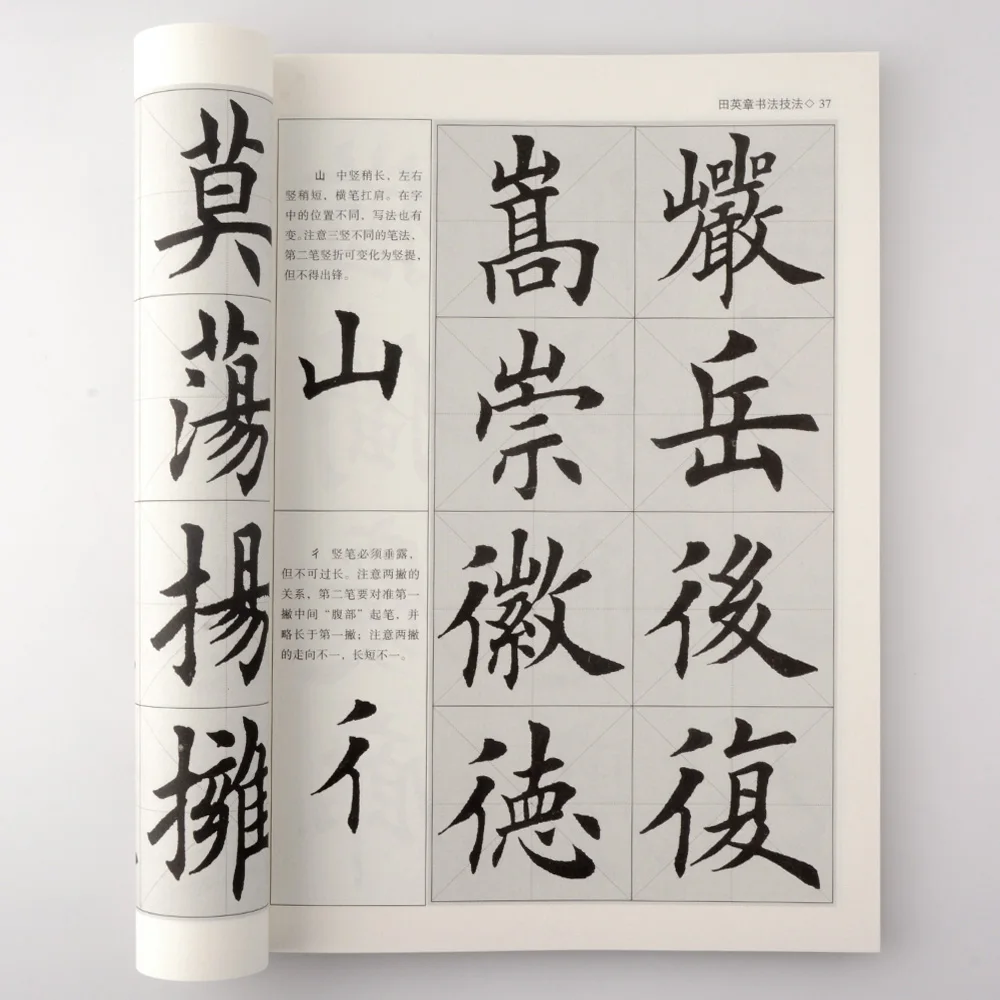 田英章书法技法◇ 37
莫
蕩
揚
擁
山 中竖稍长，左右
竖稍短，横笔扛肩。在字
中的位置不同，写法也有
变。注意三竖不同的笔法，
第二笔竖折可变化为竖提，
但不得出锋。
山
彳 竖笔必须垂露，
但不可过长。注意两撇的
关系，第二笔要对准第一
撇中间“腹部”起笔，并
略长于第一撇；注意两撇
的走向不一，长短不一。
彳
嵩 巖
崇 岳
徽 後
德 復